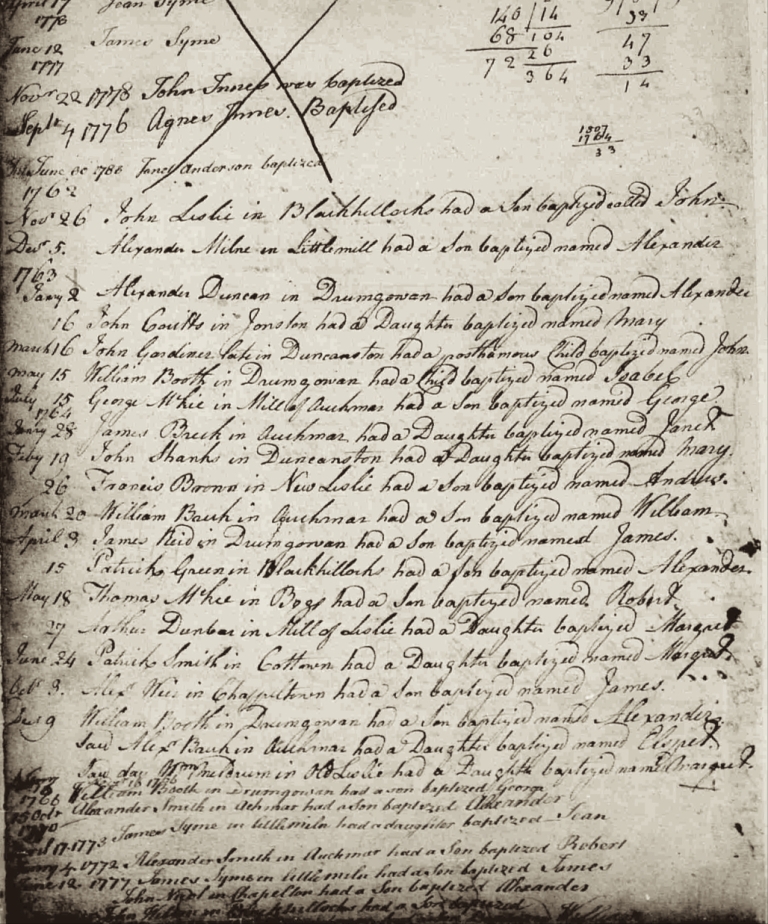 April 17 Jean Syme
1776
June 12 James Syme
1777
140 | 14
68 | 104
72 26
364
33
47
33
14
Novr 22 1778 John Innes was baptized
Septr 4 1776 Agnes Innes. Baptised
1807
1764
33
June 1786 Janet Anderson baptized
1762
Novr 26 John Leslie in Blackhillocks had a Son baptized called John
Decr 5. Alexander Milne in Littlemill had a Son baptized named Alexander
1763
Janry 2 Alexander Duncan in Drumgowan had a Son baptized named Alexander
16 John Coutts in Jonston had a Daughter baptized named Mary
March 16 John Gordiner late in Duncanston had a posthumous Child baptized named John
May 15 William Booth in Drumgowan had a Child baptized named Isabel
July 15 George McKie in Mill of Auchmar had a Son baptized named George
1764
Janry 28 James Breck in Auchmar had a Daughter baptized named Janet
Febry 19 John Shanks in Duncanston had a Daughter baptized named Mary.
26 Francis Brown in New Leslie had a Son baptized named Andrew.
March 20 William Bauk in Auchmar had a Son baptized named William
April 3 James Reid in Drumgowan had a Son baptized named James.
15 Patrick Green in Blackhillocks had a Son baptized named Alexander
May 18 Thomas McKie in Bogs had a Son baptized named Robert
27 Arthur Dunbar in Mill of Leslie had a Daughter baptized Margret
June 24 Patrick Smith in Cottown had a Daughter baptized named Margret
Octr 3. Alexr Weir in Chappeltown had a Son baptized named James.
Decr 9 William Booth in Drumgowan had a Son baptized named Alexander
Said Alexr Bauk in Auchmar had a Daughter baptized named Elspet
Said day Wm Meldrum in Old Leslie had a Daughter baptized named Margret
William Booth in Drumgowan had a son baptized George
1766
Alexander Smith in Achmar had a Son baptized Alexander
1770
April 17 1773 James Syme in Littlemiln had a daughter baptized Jean
4 1772 Alexander Smith in Auchmar had a Son baptized Robert
June 12 1777 James Syme in Littlemiln had a Son baptized James
John in Chapelton had a Son baptized Alexander
John in Blackhillocks had a Son baptized